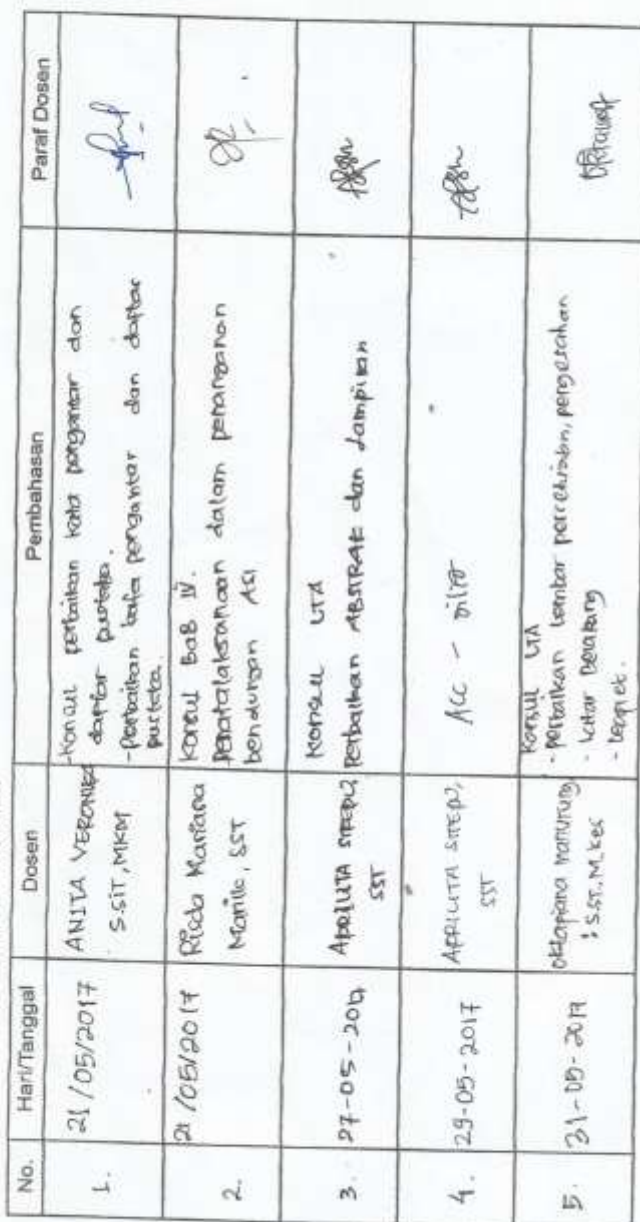 No. Hari/Tanggal Dosen Pembahasan Paraf Dosen
1. 21/05/2017
ANITA VERONIKA
S.SiT, MKM
-Konsul perbaikan kata pengantar dan
daftar pustaka.
-perbaikan kata pengantar dan daftar
pustaka.
2. 21/05/2017
Risda Mariana
Manik, SST
Konsul BAB IV.
penatalaksanaan dalam penanganan
bendungan ASI
3. 27-05-2017
APRILITA SITEPU,
SST
Konsul LTA
perbaikan ABSTRAK dan Lampiran
4. 29-05-2017
APRILITA SITEPU,
SST
ACC -
5. 31-05-2017
Oktafiana Manurung,
S.ST., M.Kes
Konsul LTA
- perbaikan lembar persetujuan, pengesahan
- Latar Belakang
- Leaflet.